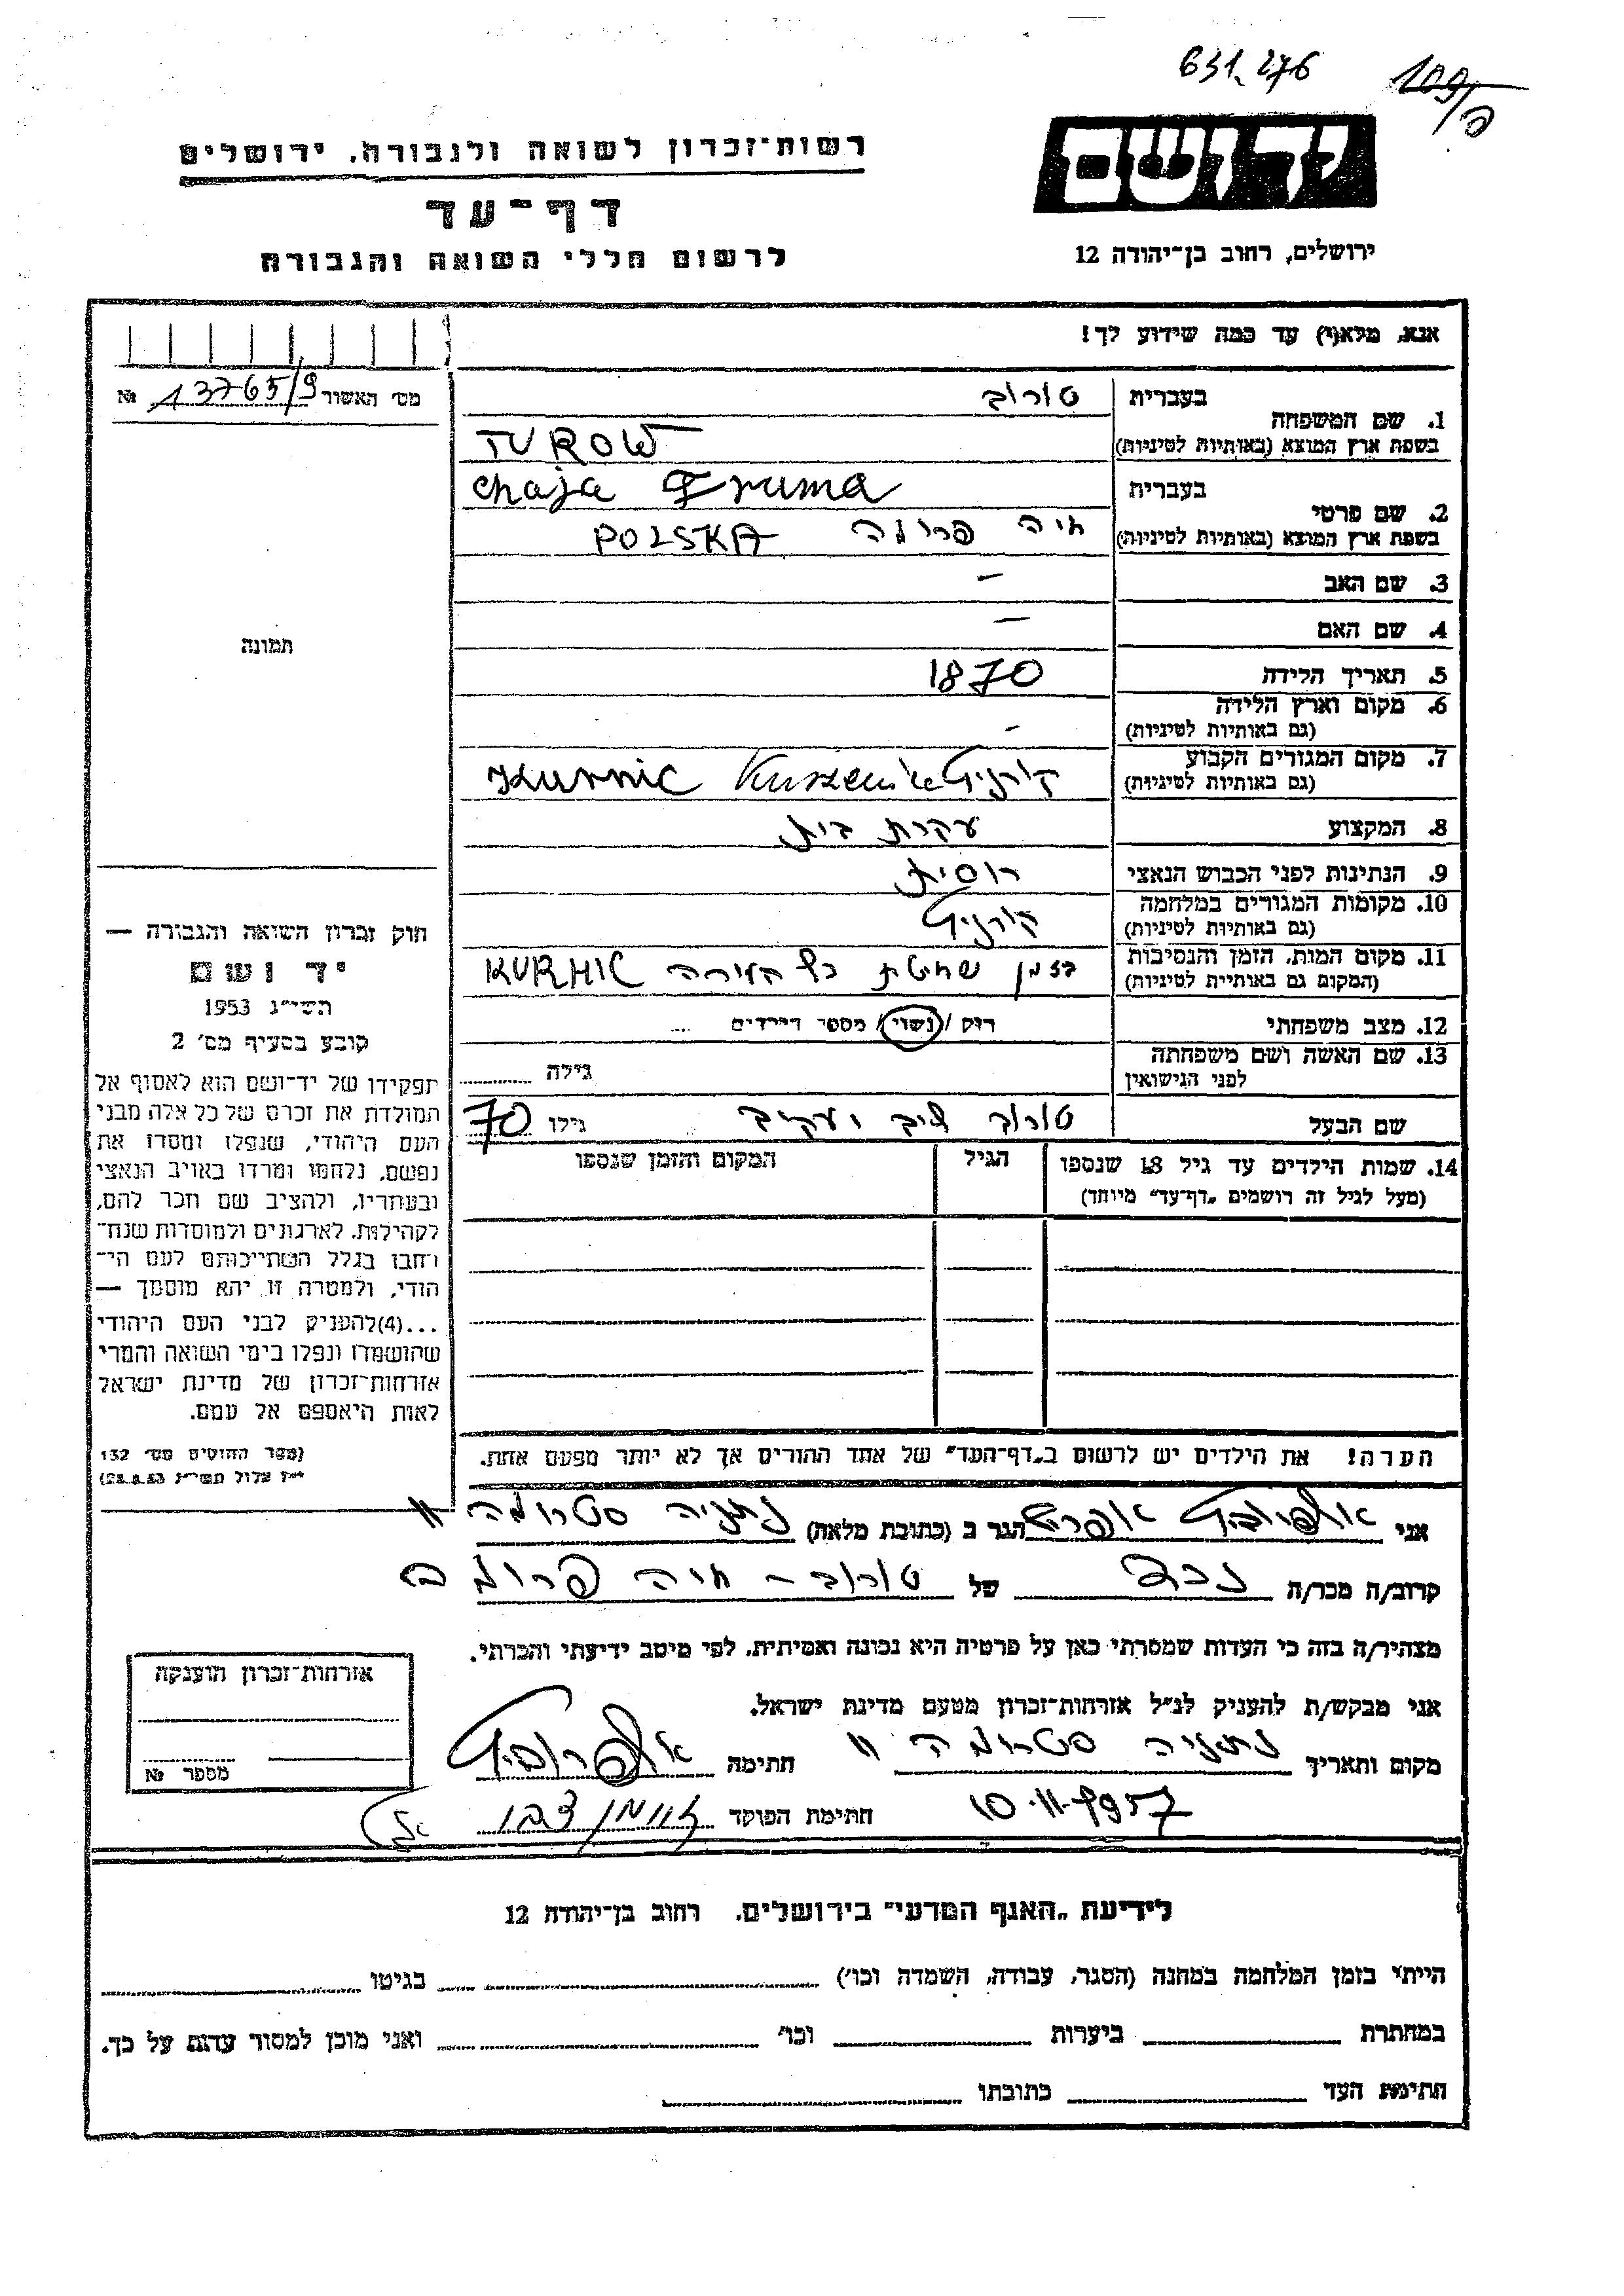 631.276
109/פ
יד ושם
ירושלים, רחוב בן־יהודה 12
רשות־זכרון לשואה ולגבורה, ירושלים
דף־עד
לרשום חללי השואה והגבורה
אנא, מלא(י) עד כמה שידוע לך!
מס' האשור 13765/9 №
תמונה
1. שם המשפחה
בעברית טורוב
בשפת ארץ המוצא (באותיות לטיניות) TUROW
2. שם פרטי
בעברית Chaja Fruma
בשפת ארץ המוצא (באותיות לטיניות) חיה פרומה POLSKA
3. שם האב –
4. שם האם –
5. תאריך הלידה 1870
6. מקום וארץ הלידה –
(גם באותיות לטיניות)
7. מקום המגורים הקבוע
(גם באותיות לטיניות) Kurnic
8. המקצוע עקרת בית
9. הנתינות לפני הכבוש הנאצי רוסית
10. מקומות המגורים במלחמה קורניץ
(גם באותיות לטיניות)
11. מקום המות, הזמן והנסיבות בזמן שחיטת כל העירה KURNIC
(המקום גם באותיית לטיניות)
12. מצב משפחתי רוק / נשוי / מספר הילדים ....
13. שם האשה ושם משפחתה
לפני הנישואין גילה
שם הבעל טורוב ליב יעקיב גילו 70
14. שמות הילדים עד גיל 18 שנספו הגיל המקום והזמן שנספו
(מעל לגיל זה רושמים „דף־עד" מיוחד)
הערה! את הילדים יש לרשום ב„דף־העד" של אחד ההורים אך לא יותר מפעם אחת.
חוק זכרון השואה והגבורה —
יד ושם
תשי"ג 1953
קובע בסעיף מס' 2
תפקידו של יד־ושם הוא לאסוף אל
המולדת את זכרם של כל אלה מבני
העם היהודי, שנפלו ומסרו את
נפשם, נלחמו ומרדו באויב הנאצי
ובעוזריו, ולהציב שם וזכר להם,
לקהילות, לארגונים ולמוסדות שנח־
רבו בגלל השתייכותם לעם הי־
הודי, ולמטרה זו יהא מוסמך —
...(4)להעניק לבני העם היהודי
שהושמדו ונפלו בימי השואה והמרי
אזרחות־זכרון של מדינת ישראל
לאות היאספם אל עמם.
(ספר החוקים מס' 132
י"ז אלול תשי"ג 28.8.53)
אני הגר ב (כתובת מלאה) נתניה סטרומה 11
קרוב/ה מכר/ה נכד של טורוב – חיה פרומה
מצהיר/ה בזה כי העדות שמסרתי כאן על פרטיה היא נכונה ואמיתית, לפי מיטב ידיעתי והכרתי.
אני מבקש/ת להעניק לנ"ל אזרחות־זכרון מטעם מדינת ישראל.
מקום ותאריך נתניה סטרומה 11 חתימה
10.11.1957 חתימת הפוקד
אזרחות־זכרון הוענקה
מספר №
לידיעת „האגף המדעי" בירושלים, רחוב בן־יהודה 12
הייתי בזמן המלחמה במחנה (הסגר, עבודה, השמדה וכו') בגיטו
במחתרת ביערות וכו' ואני מוכן למסור עדות על כך.
חתימת העד כתובתו